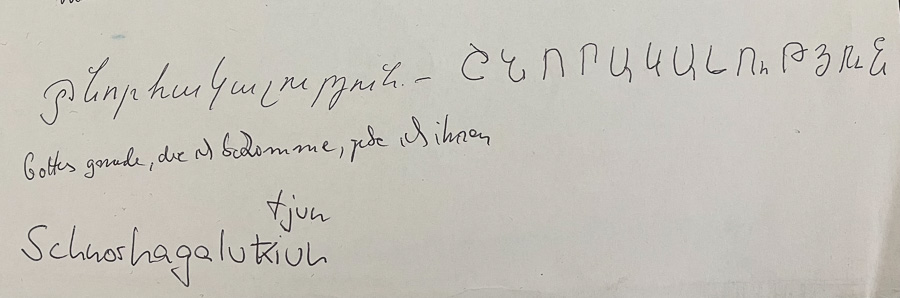 շնորհակալություն. – ՇՆՈՐՀԱԿԱԼՈՒԹՅՈՒՆ
Gottes gerade, die ich bekomme, gebe ich ihnen
tjun
Schnorhagalutkiun